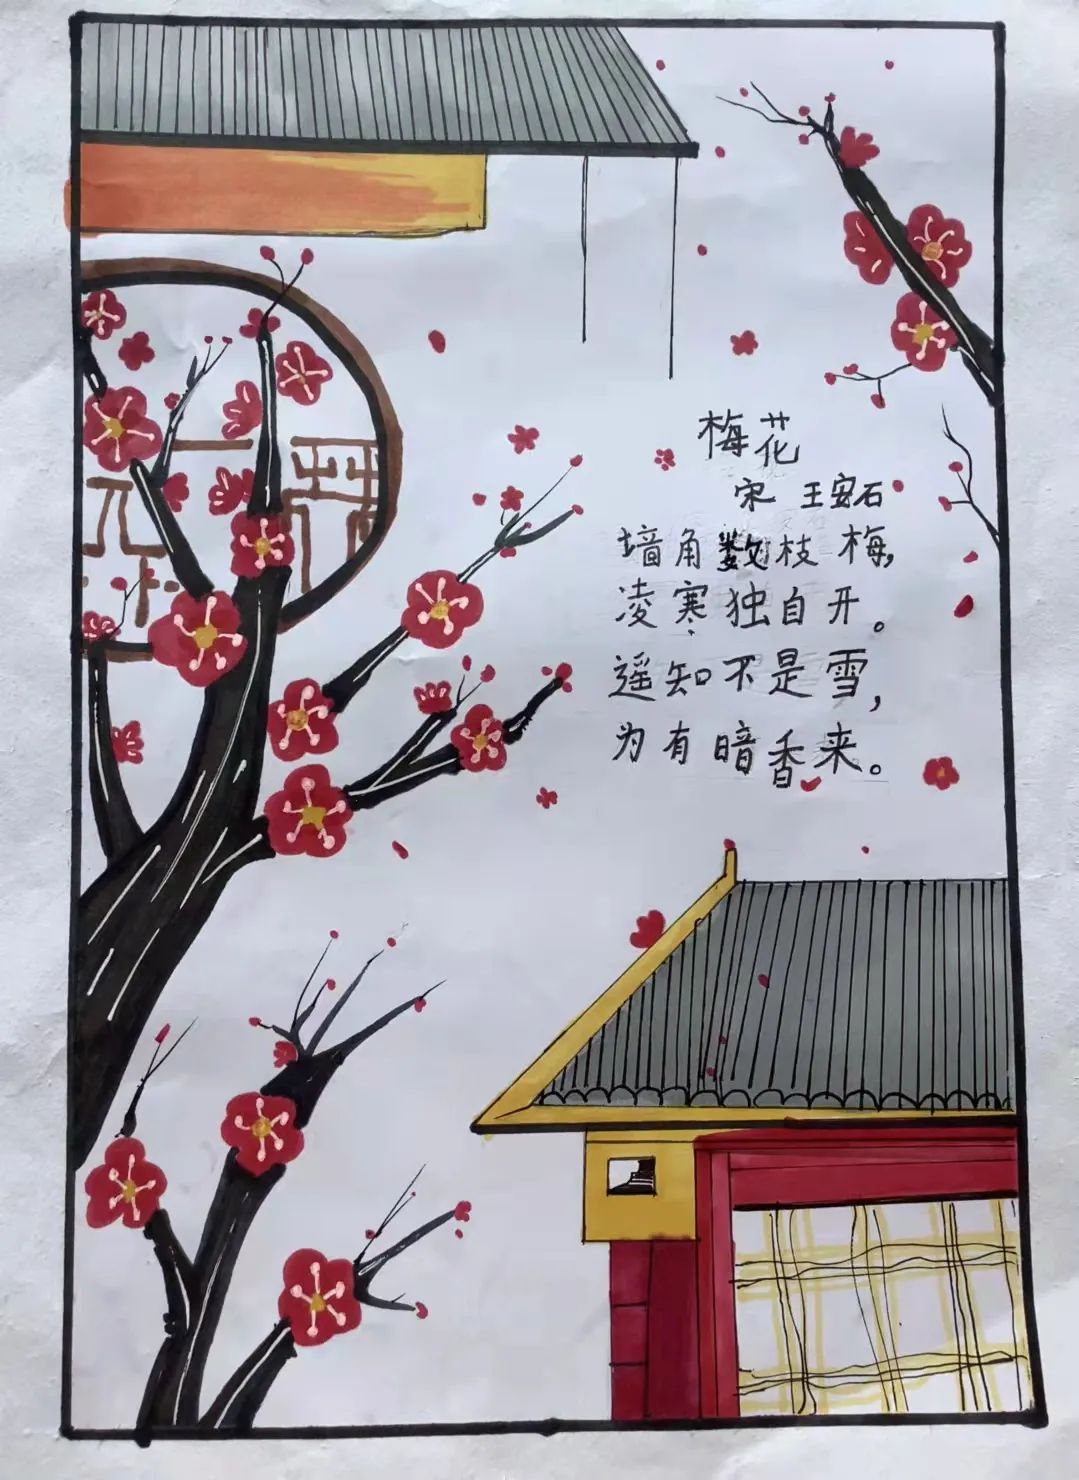 梅花
宋 王安石
墙角数枝梅,
凌寒独自开。
遥知不是雪,
为有暗香来。